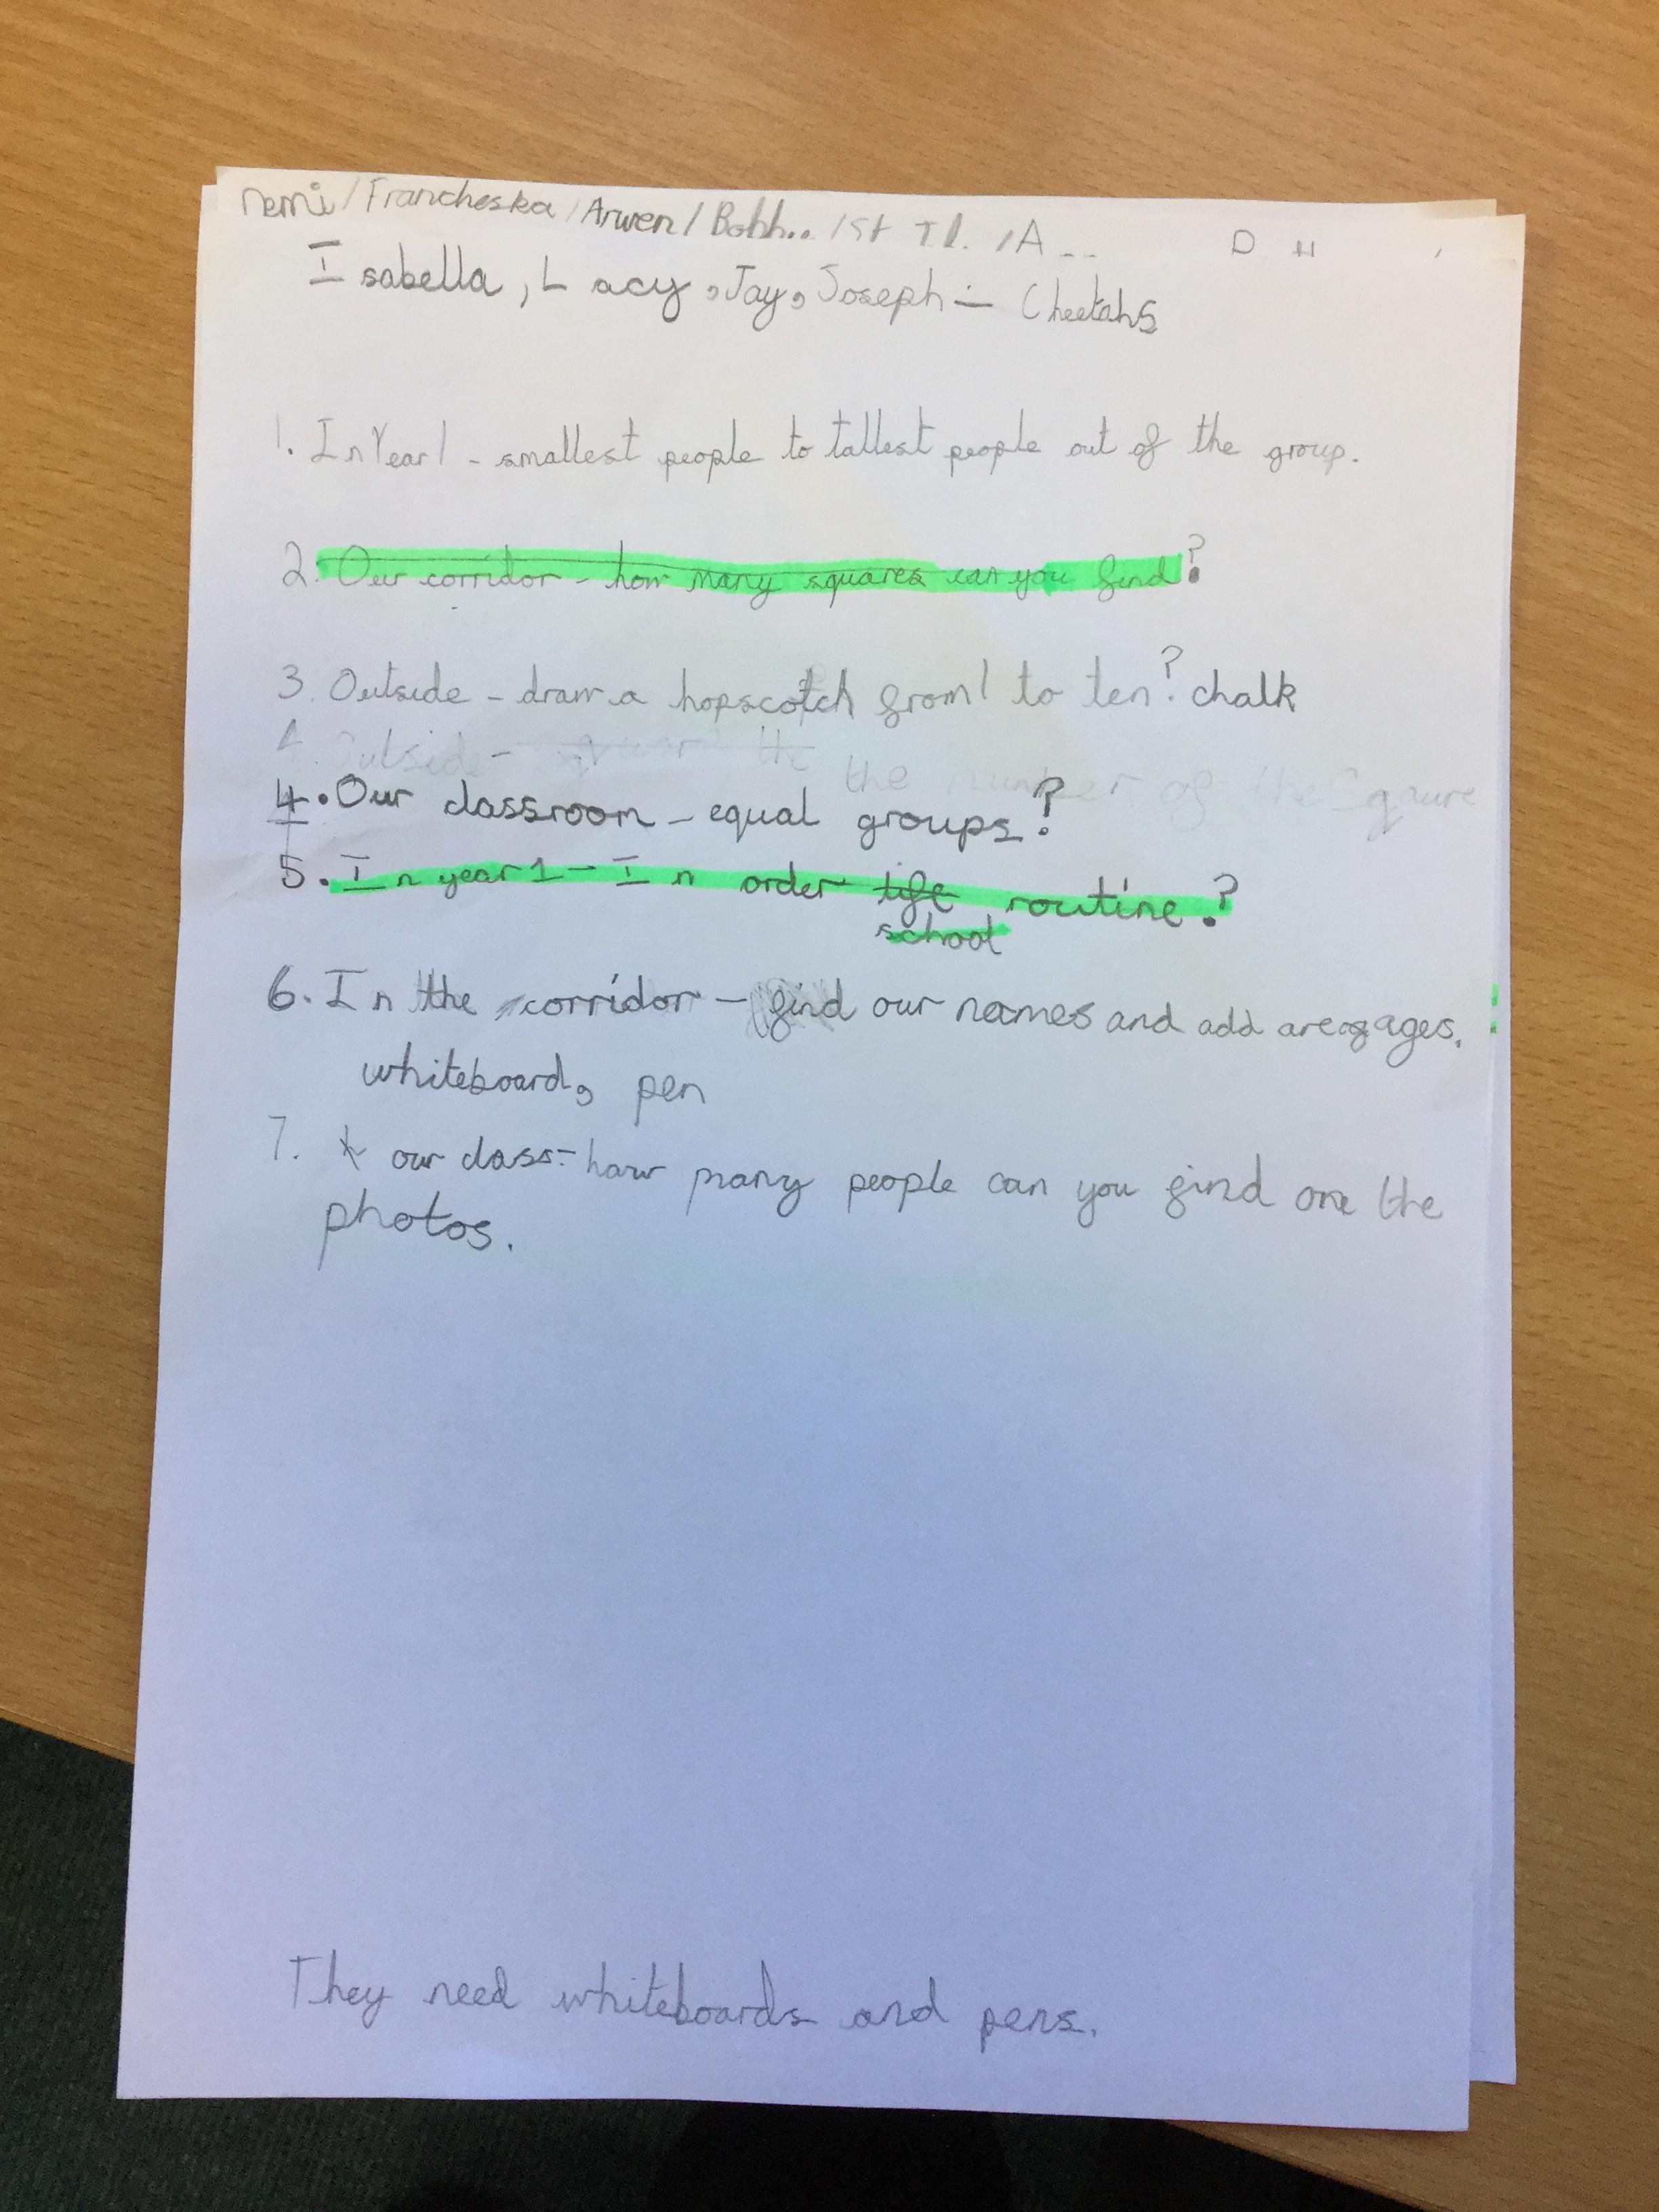 nemi / Francheska / Arwen / Bobh.. / St T l. / A ..
Isabella, Lacy, Jay, Joseph - Cheetahs
1. In Year 1 - smallest people to tallest people out of the group.
2. Our corridor - how many squares can you find?
3. Outside - draw a hopscotch from 1 to ten? chalk
4. Outside - the number of the Sqaure
4. Our classroom - equal groups?
5. In year 1 - In order life routine?
school
6. In the corridor - find our names and add are ages.
whiteboard, pen
7. our class - how many people can you find one the
photos.
They need whiteboards and pens.